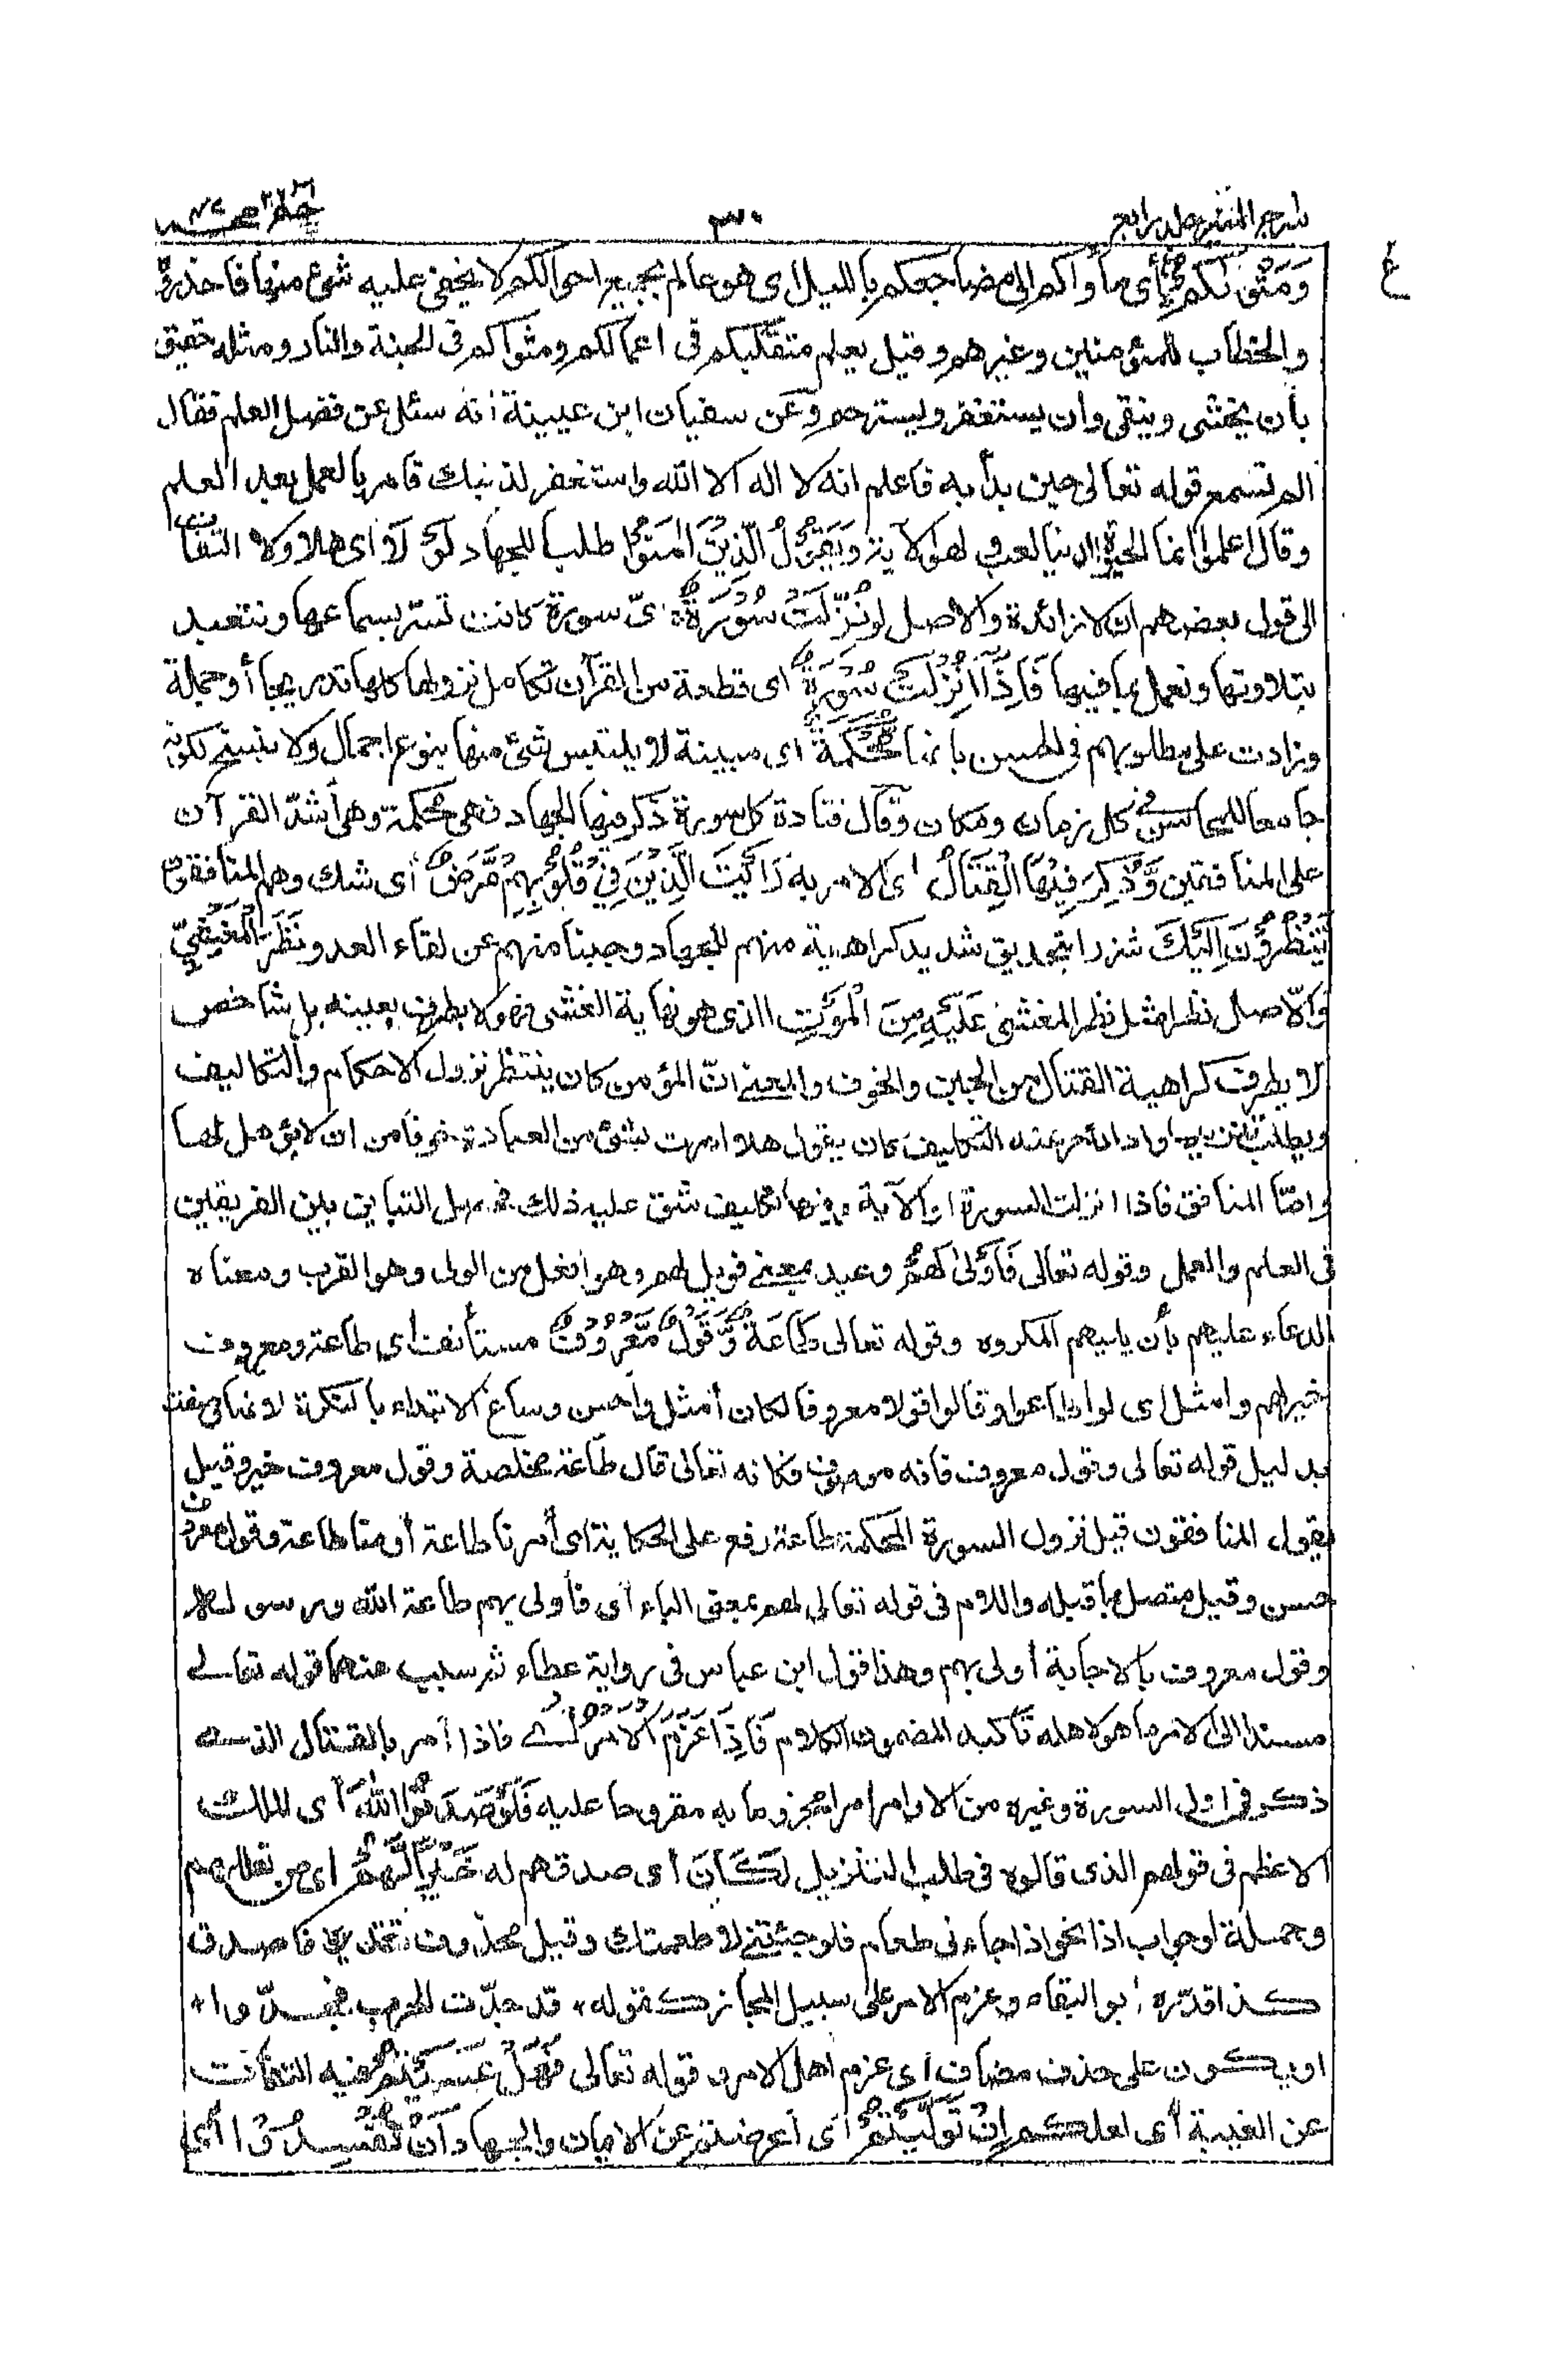 السراج المنير جلد رابع
٣٠
ع
وَمَثْوٰىكُمْ أي مأواكم إلى مضاجعكم بالليل اى هو عالم بجميع احوالكم لا يخفى عليه شئ منها فاحذروه
والخطاب للمؤمنين وغيرهم وقيل يعلم متقلبكم فى اعمالكم ومثواكم فى الجنة والنار ومثله حقيق
بأن يخشى ويتقى وان يستغفر ويسترحم وعن سفيان ابن عيينة أنه سئل عن فضل العلم فقال
الم تسمع قوله تعالى حين بدأ به فاعلم انه لا اله الا الله واستغفر لذنبك فامر بالعمل بعد العلم
وقال اعلموا انما الحيوة الدنيا لعب و لهو الآية وَيَقُوْلُ الَّذِيْنَ اٰمَنُوْا طلبا للجهاد لَوْلَا أى هلا ولا التفات
الى قول بعضهم ان لا زائدة والاصل لو نُزِّلَتْ سُوْرَةٌ اىّ سورة كانت تسرّ بسماعها ونتعبد
بتلاوتها ونعمل بما فيها فَاِذَا اُنْزِلَتْ سُوْرَةٌ اى قطعة من القرآن تكامل نزولها كلها تدريجا أو جملة
وزادت على مطلوبهم فى الحسن بانها مُّحْكَمَةٌ اى مبينة لا يلتبس شئ منها بنوع اجمال ولا ينسخ لكونه
جامعا للمحاسن في كل زمان ومكان وقال قتادة كل سورة ذكر فيها الجهاد فهى محكمة وهى أشدّ القرآن
على المنافقين وَّذُكِرَ فِيْهَا الْقِتَالُ اى الامر به رَاَيْتَ الَّذِيْنَ فِيْ قُلُوْبِهِمْ مَّرَضٌ أى شك وهم المنافقون
يَّنْظُرُوْنَ اِلَيْكَ شزرا بتحديق شديد كراهية منهم للجهاد وجبنا منهم عن لقاء العدو نَظَرَ الْمَغْشِيِّ
والاصل نظرا مثل نظر المغشي عَلَيْهِ مِنَ الْمَوْتِ الذى هو نهاية الغشى فهو لا يطرف بعينه بل شاخص
لا يطرف كراهية القتال من الجبن والخوف والمعنى انّ المؤمن كان ينتظر نزول الاحكام والتكاليف
ويطلب واذا تأخر عنه التكليف كان يقول هلا امرت بشئ من العبادة خوفا من ان لا يؤهل لها
وامّا المنافق فاذا انزلت السورة او الآية وفيها تكليف شق عليه ذلك فحصل التباين بين الفريقين
فى العلم والعمل وقوله تعالى فَاَوْلٰى لَهُمْ وعيد بمعنى فويل لهم وهو أفعل من الولى وهو القرب ومعناه
الدعاء عليهم بأن يليهم المكروه وقوله تعالى طَاعَةٌ وَّقَوْلٌ مَّعْرُوْفٌ مستأنف أى طاعة ومعروف
خير لهم وامثل اى لو اطاعوا وقالوا قولا معروفا لكان أمثل واحسن وساغ الابتداء بالنكرة لانها وصفت
بدليل قوله تعالى وقول معروف فانه موصوف فكانه تعالى قال طاعة مخلصة وقول معروف خير وقيل
يقول المنافقون قبل نزول السورة المحكمة طاعة رفع على الحكاية أى أمرنا طاعة أو منا طاعة وقول معروف
حسن وقيل متصل بما قبله واللام فى قوله تعالى لهم بمعنى الباء أى فأولى بهم طاعة الله ورسوله
وقول معروف بالاجابة أولى بهم وهذا قول ابن عباس فى رواية عطاء ثم سبب عنهما قوله تعالى
مسندا الى الامر ما هو لاهله تأكيد المضمون الكلام فَاِذَا عَزَمَ الْاَمْرُ فاذا أمر بالقتال الذى
ذكر فى اول السورة وغيره من الاوامر مجزوما به مفروضا عليه فَلَوْ صَدَقُوا اللهَ أى الملك
الاعظم فى قولهم الذى قالوه فى طلب التنزيل لَكَانَ أى صدقهم له خَيْرًا لَّهُمْ اى من تعللهم
وجملة لو جواب اذا نحو اذا جاءنى طعام فلو جئتنى لاطعمتك وقيل محذوف تقديره فاصدق
كذا قدّره أبو البقاء وعزم الامر على سبيل المجاز كقوله * قد جدّت الحرب فجدّوا *
او يكون على حذف مضاف أى عزم اهل الامر و قوله تعالى فَهَلْ عَسَيْتُمْ فيه التفات
عن الغيبة أى لعلكم اِنْ تَوَلَّيْتُمْ أى أعرضتم عن الايمان والجهاد اَنْ تُفْسِدُوْا أى